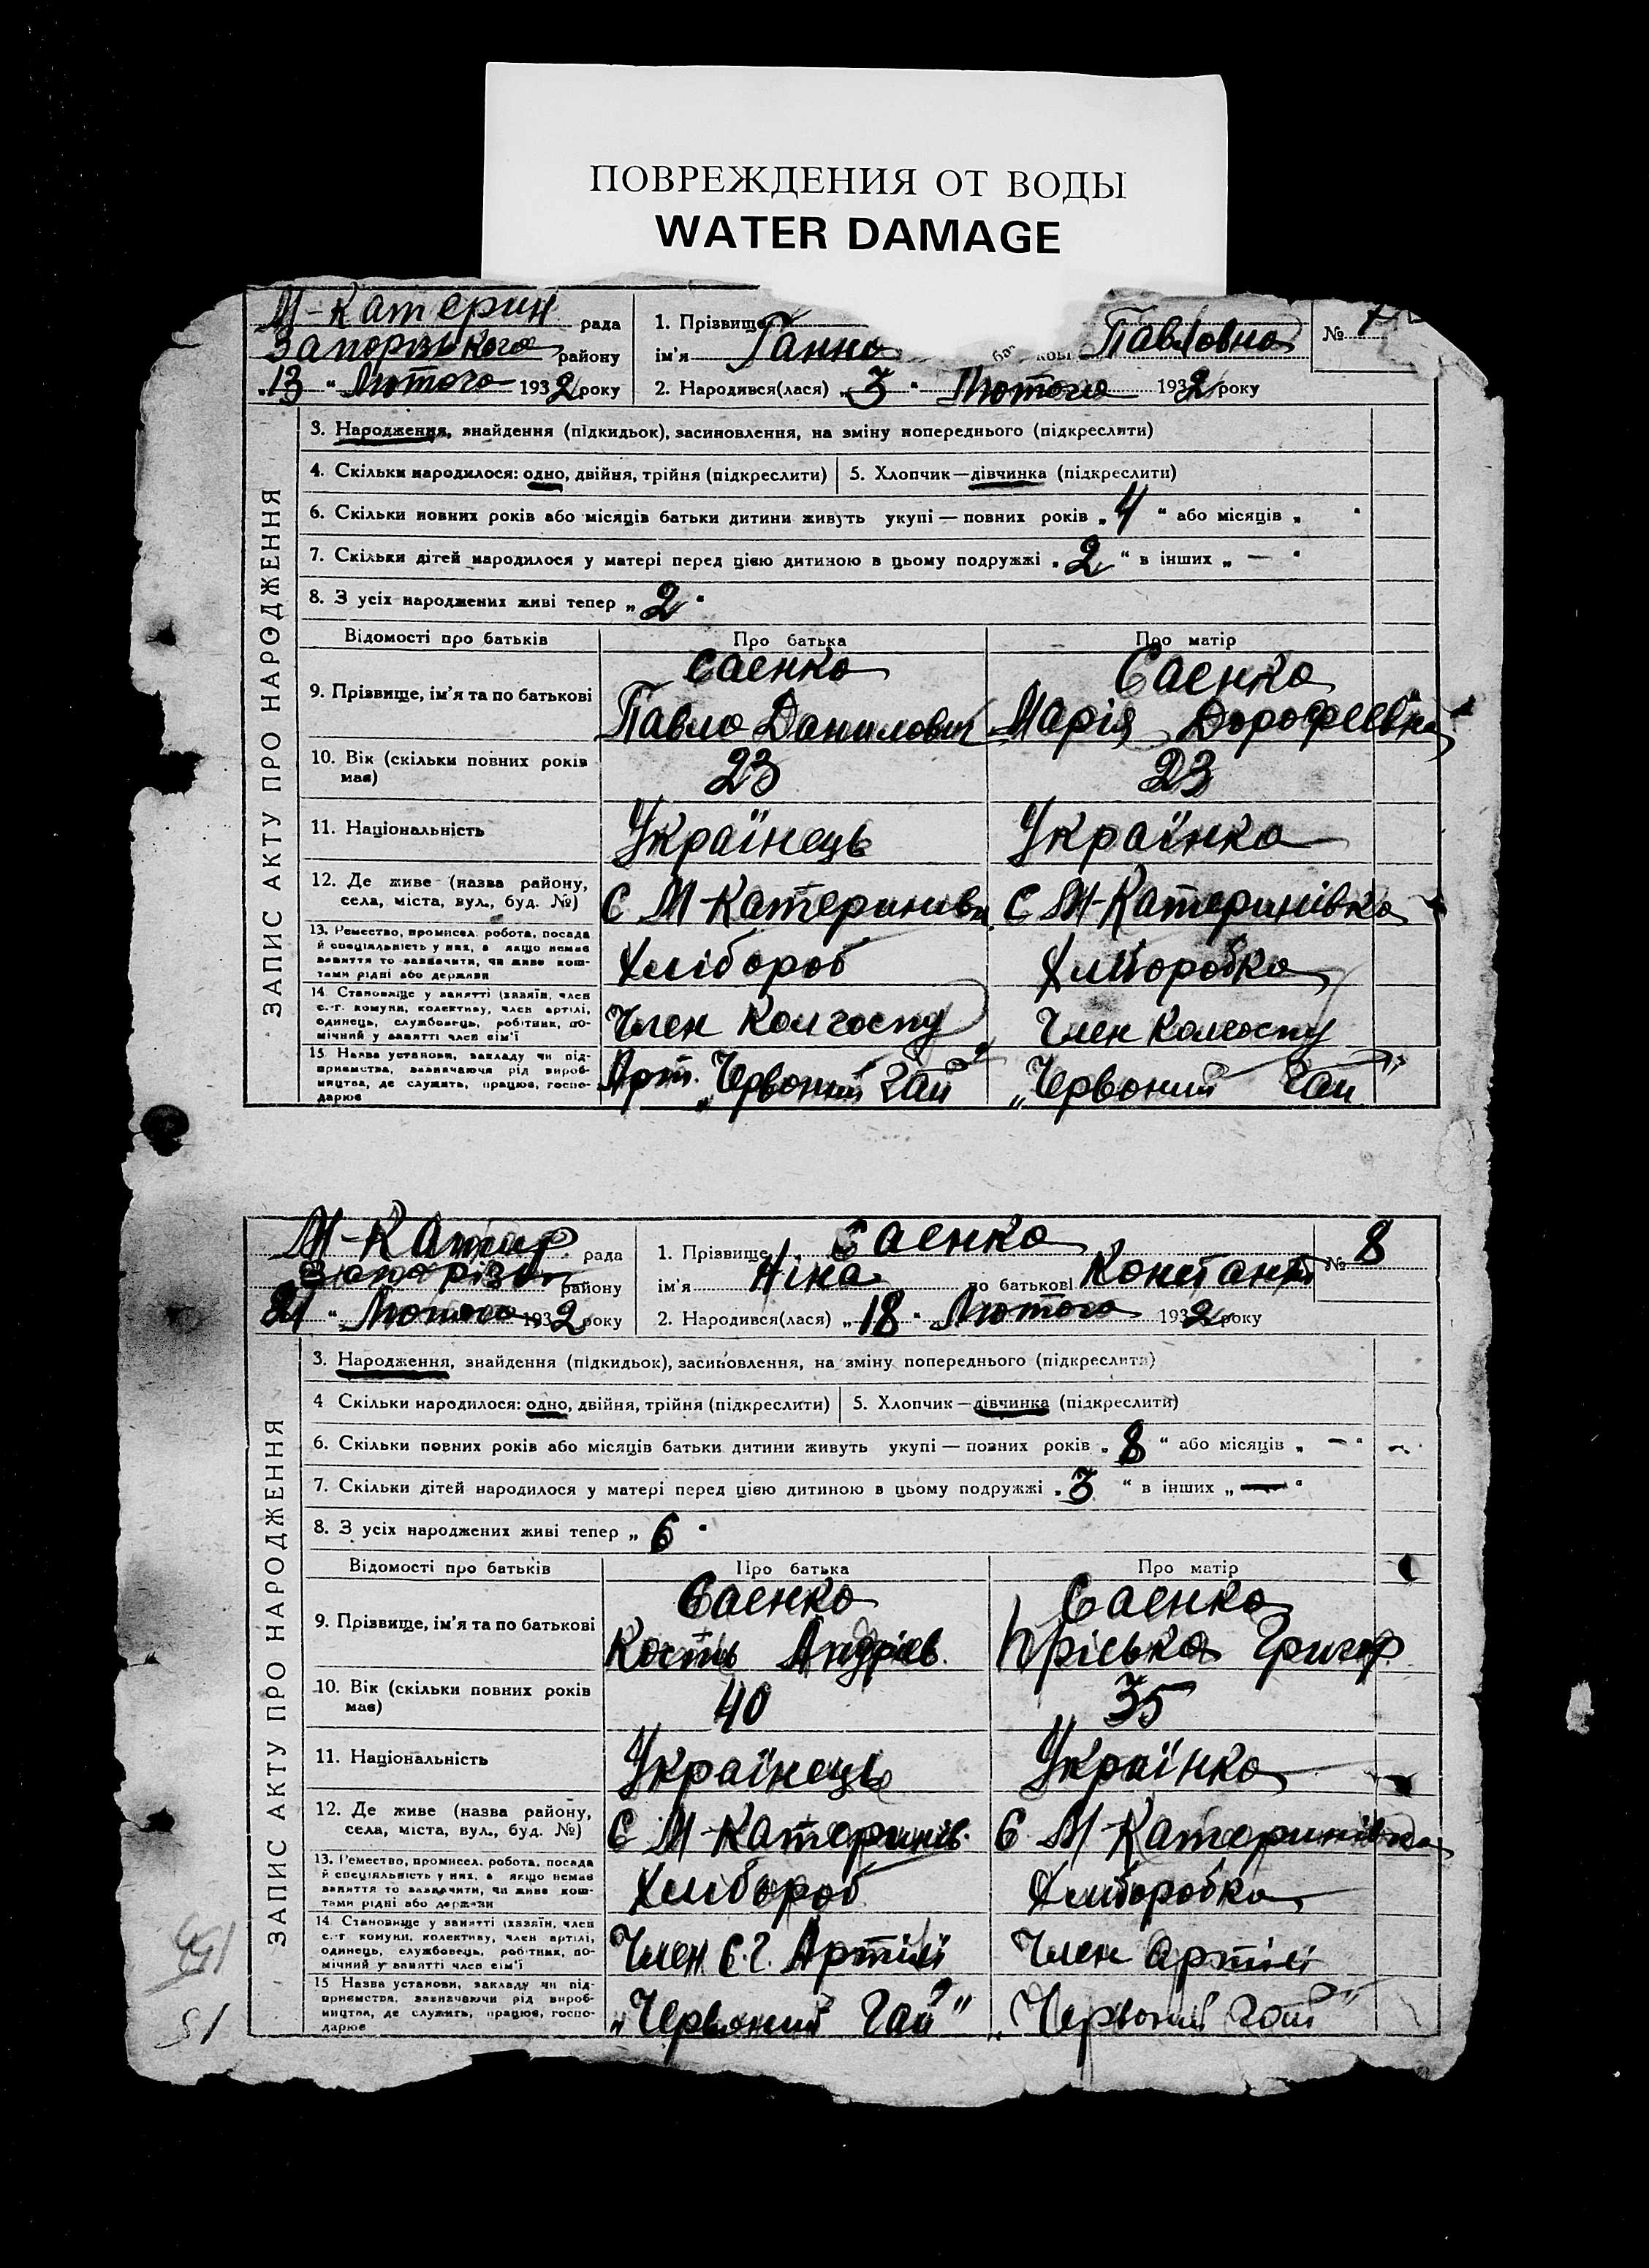 ПОВРЕЖДЕНИЯ ОТ ВОДЫ
WATER DAMAGE
М-Катерин рада
Запорізького району
„13 “ Лютого 1932 року
1. Прізвище
ім’я Ганна Павловна
2. Народився(лася) „3 “ Лютого 1932 року
№
ЗАПИС АКТУ ПРО НАРОДЖЕННЯ
3. Народження, знайдення (підкидьок), засиновлення, на зміну попереднього (підкреслити)
4. Скільки народилося: одно, двійня, трійня (підкреслити) 5. Хлопчик—дівчинка (підкреслити)
6. Скільки повних років або місяців батьки дитини живуть укупі — повних років „ 4 “ або місяців „ “
7. Скільки дітей народилося у матері перед цією дитиною в цьому подружжі „ 2 “ в інших „ — “
8. З усіх народжених живі тепер „ 2 “
Відомості про батьків Про батька Про матір
9. Прізвище, ім’я та по батькові
Саенко Саенко
Павло Данилович Марія Дорофеевна
10. Вік (скільки повних років має) 23 23
11. Національність Українець Українка
12. Де живе (назва району, села, міста, вул., буд. №) С М-Катеринівка С М-Катеринівка
13. Ремество, промисел, робота, посада
й спеціяльність у них, а якщо немає
заняття то зазначити, чи живе кош-
тами рідні або держави
Хлібороб Хліборобка
14. Становище у занятті (хазяїн, член
с.-г. комуни, колективу, член артілі,
одинець, службовець, робітник, по-
мічний у занятті член сім’ї
Член Колгоспу Член Колгоспу
15 Назва установи, закладу чи під-
приємства, зазначаючи рід вироб-
ництва, де служить, працює, госпо-
дарює
Арт. „Червоний Гай“ „Червоний Гай“
М-Катер рада
району
21 “ Лютого 1932 року
1. Прізвище Саенко
ім’я Ніна по батькові Констант
2. Народився(лася) „18 “ Лютого 1932 року
№ 8
ЗАПИС АКТУ ПРО НАРОДЖЕННЯ
3. Народження, знайдення (підкидьок), засиновлення, на зміну попереднього (підкреслити)
4 Скільки народилося: одно, двійня, трійня (підкреслити) 5. Хлопчик—дівчинка (підкреслити)
6. Скільки повних років або місяців батьки дитини живуть укупі — повних років „ 8 “ або місяців „ — “
7. Скільки дітей народилося у матері перед цією дитиною в цьому подружжі „ 3 “ в інших „ — “
8. З усіх народжених живі тепер „ 6 “
Відомості про батьків Про батька Про матір
9. Прізвище, ім’я та по батькові
Саенко Саенко
Кость Андріев. Пріська Григор.
10. Вік (скільки повних років має) 40 35
11. Національність Українець Українка
12. Де живе (назва району, села, міста, вул., буд. №) С М-Катеринів. С М-Катеринівка
13. Ремество, промисел, робота, посада
й спеціяльність у них, а якщо немає
заняття то зазначити, чи живе кош-
тами рідні або держави
Хлібороб Хліборобка
14. Становище у занятті (хазяїн, член
с.-г. комуни, колективу, член артілі,
одинець, службовець, робітник, по-
мічний у занятті член сім’ї
Член С.Г. Артілі Член Артілі
15 Назва установи, закладу чи під-
приємства, зазначаючи рід вироб-
ництва, де служить, працює, госпо-
дарює
„Червоний Гай“ „Червоний Гай“
51